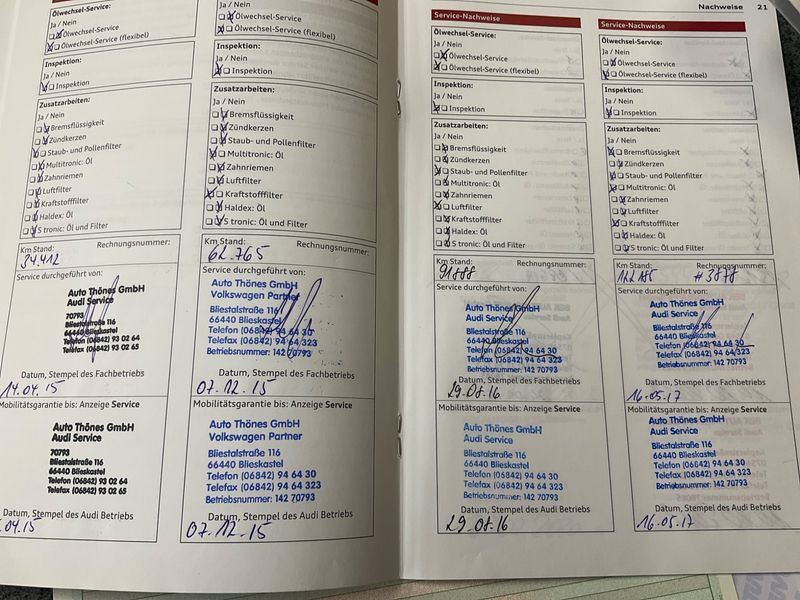 Nachweise 21
Ölwechsel-Service:
Ja / Nein
Ölwechsel-Service
Ölwechsel-Service (flexibel)
Inspektion:
Ja / Nein
Inspektion
Zusatzarbeiten:
Ja / Nein
Bremsflüssigkeit
Zündkerzen
Staub- und Pollenfilter
Multitronic: Öl
Zahnriemen
Luftfilter
Kraftstofffilter
Haldex: Öl
S tronic: Öl und Filter
Km Stand: Rechnungsnummer:
34.412
Service durchgeführt von:
Auto Thönes GmbH
Audi Service
70793
Bliestalstraße 116
66440 Blieskastel
Telefon (06842) 93 02 64
Telefax (06842) 93 02 65
Datum, Stempel des Fachbetriebs
14.04.15
Mobilitätsgarantie bis: Anzeige Service
Auto Thönes GmbH
Audi Service
70793
Bliestalstraße 116
66440 Blieskastel
Telefon (06842) 93 02 64
Telefax (06842) 93 02 65
Datum, Stempel des Audi Betriebs
.04.15
Ölwechsel-Service:
Ja / Nein
Ölwechsel-Service
Ölwechsel-Service (flexibel)
Inspektion:
Ja / Nein
Inspektion
Zusatzarbeiten:
Ja / Nein
Bremsflüssigkeit
Zündkerzen
Staub- und Pollenfilter
Multitronic: Öl
Zahnriemen
Luftfilter
Kraftstofffilter
Haldex: Öl
S tronic: Öl und Filter
Km Stand: Rechnungsnummer:
62.765
Service durchgeführt von:
Auto Thönes GmbH
Volkswagen Partner
Bliestalstraße 116
66440 Blieskastel
Telefon (06842) 94 64 30
Telefax (06842) 94 64 323
Betriebsnummer: 142 70793
Datum, Stempel des Fachbetriebs
07.12.15
Mobilitätsgarantie bis: Anzeige Service
Auto Thönes GmbH
Volkswagen Partner
Bliestalstraße 116
66440 Blieskastel
Telefon (06842) 94 64 30
Telefax (06842) 94 64 323
Betriebsnummer: 142 70793
Datum, Stempel des Audi Betriebs
07.12.15
Service-Nachweise
Ölwechsel-Service:
Ja / Nein
Ölwechsel-Service
Ölwechsel-Service (flexibel)
Inspektion:
Ja / Nein
Inspektion
Zusatzarbeiten:
Ja / Nein
Bremsflüssigkeit
Zündkerzen
Staub- und Pollenfilter
Multitronic: Öl
Zahnriemen
Luftfilter
Kraftstofffilter
Haldex: Öl
S tronic: Öl und Filter
Km Stand: Rechnungsnummer:
91888
Service durchgeführt von:
Auto Thönes GmbH
Audi Service
Bliestalstraße 116
66440 Blieskastel
Telefon (06842) 94 64 30
Telefax (06842) 94 64 323
Betriebsnummer: 142 70793
Datum, Stempel des Fachbetriebs
29.08.16
Mobilitätsgarantie bis: Anzeige Service
Auto Thönes GmbH
Audi Service
Bliestalstraße 116
66440 Blieskastel
Telefon (06842) 94 64 30
Telefax (06842) 94 64 323
Betriebsnummer: 142 70793
Datum, Stempel des Audi Betriebs
29.08.16
Service-Nachweise
Ölwechsel-Service:
Ja / Nein
Ölwechsel-Service
Ölwechsel-Service (flexibel)
Inspektion:
Ja / Nein
Inspektion
Zusatzarbeiten:
Ja / Nein
Bremsflüssigkeit
Zündkerzen
Staub- und Pollenfilter
Multitronic: Öl
Zahnriemen
Luftfilter
Kraftstofffilter
Haldex: Öl
S tronic: Öl und Filter
Km Stand: Rechnungsnummer:
122185 #3878
Service durchgeführt von:
Auto Thönes GmbH
Audi Service
Bliestalstraße 116
66440 Blieskastel
Telefon (06842) 94 64 30
Telefax (06842) 94 64 323
Betriebsnummer: 142 70793
Datum, Stempel des Fachbetriebs
16.05.17
Mobilitätsgarantie bis: Anzeige Service
Auto Thönes GmbH
Audi Service
Bliestalstraße 116
66440 Blieskastel
Telefon (06842) 94 64 30
Telefax (06842) 94 64 323
Betriebsnummer: 142 70793
Datum, Stempel des Audi Betriebs
16.05.17